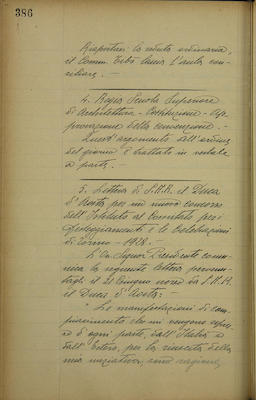 386
Riaperta la seduta ordinaria,
il Comm. lascia l'aula con-
siliare. —
4. Regia Scuola Superiore
di Architettura - Costituzione - Ap-
provazione della convenzione. -
Quest'argomento dell'ordine
del giorno è trattato in verbale
a parte. -
5. Lettera di S.A.R. il Duca
d'Aosta per un nuovo concorso
dell'Istituto al Comitato per i
festeggiamenti e le Celebrazioni
di Torino - 1928. -
L'On. Signor Presidente comu-
nica la seguente lettera pervenu-
tagli il 21 Giugno da S.A.R.
il Duca d'Aosta: -
" Le manifestazioni di com-
piacimento che mi vengono espres-
se d'ogni parte, dall'Italia e
dall'Estero, per la riuscita della
mia iniziativa, sono ragione